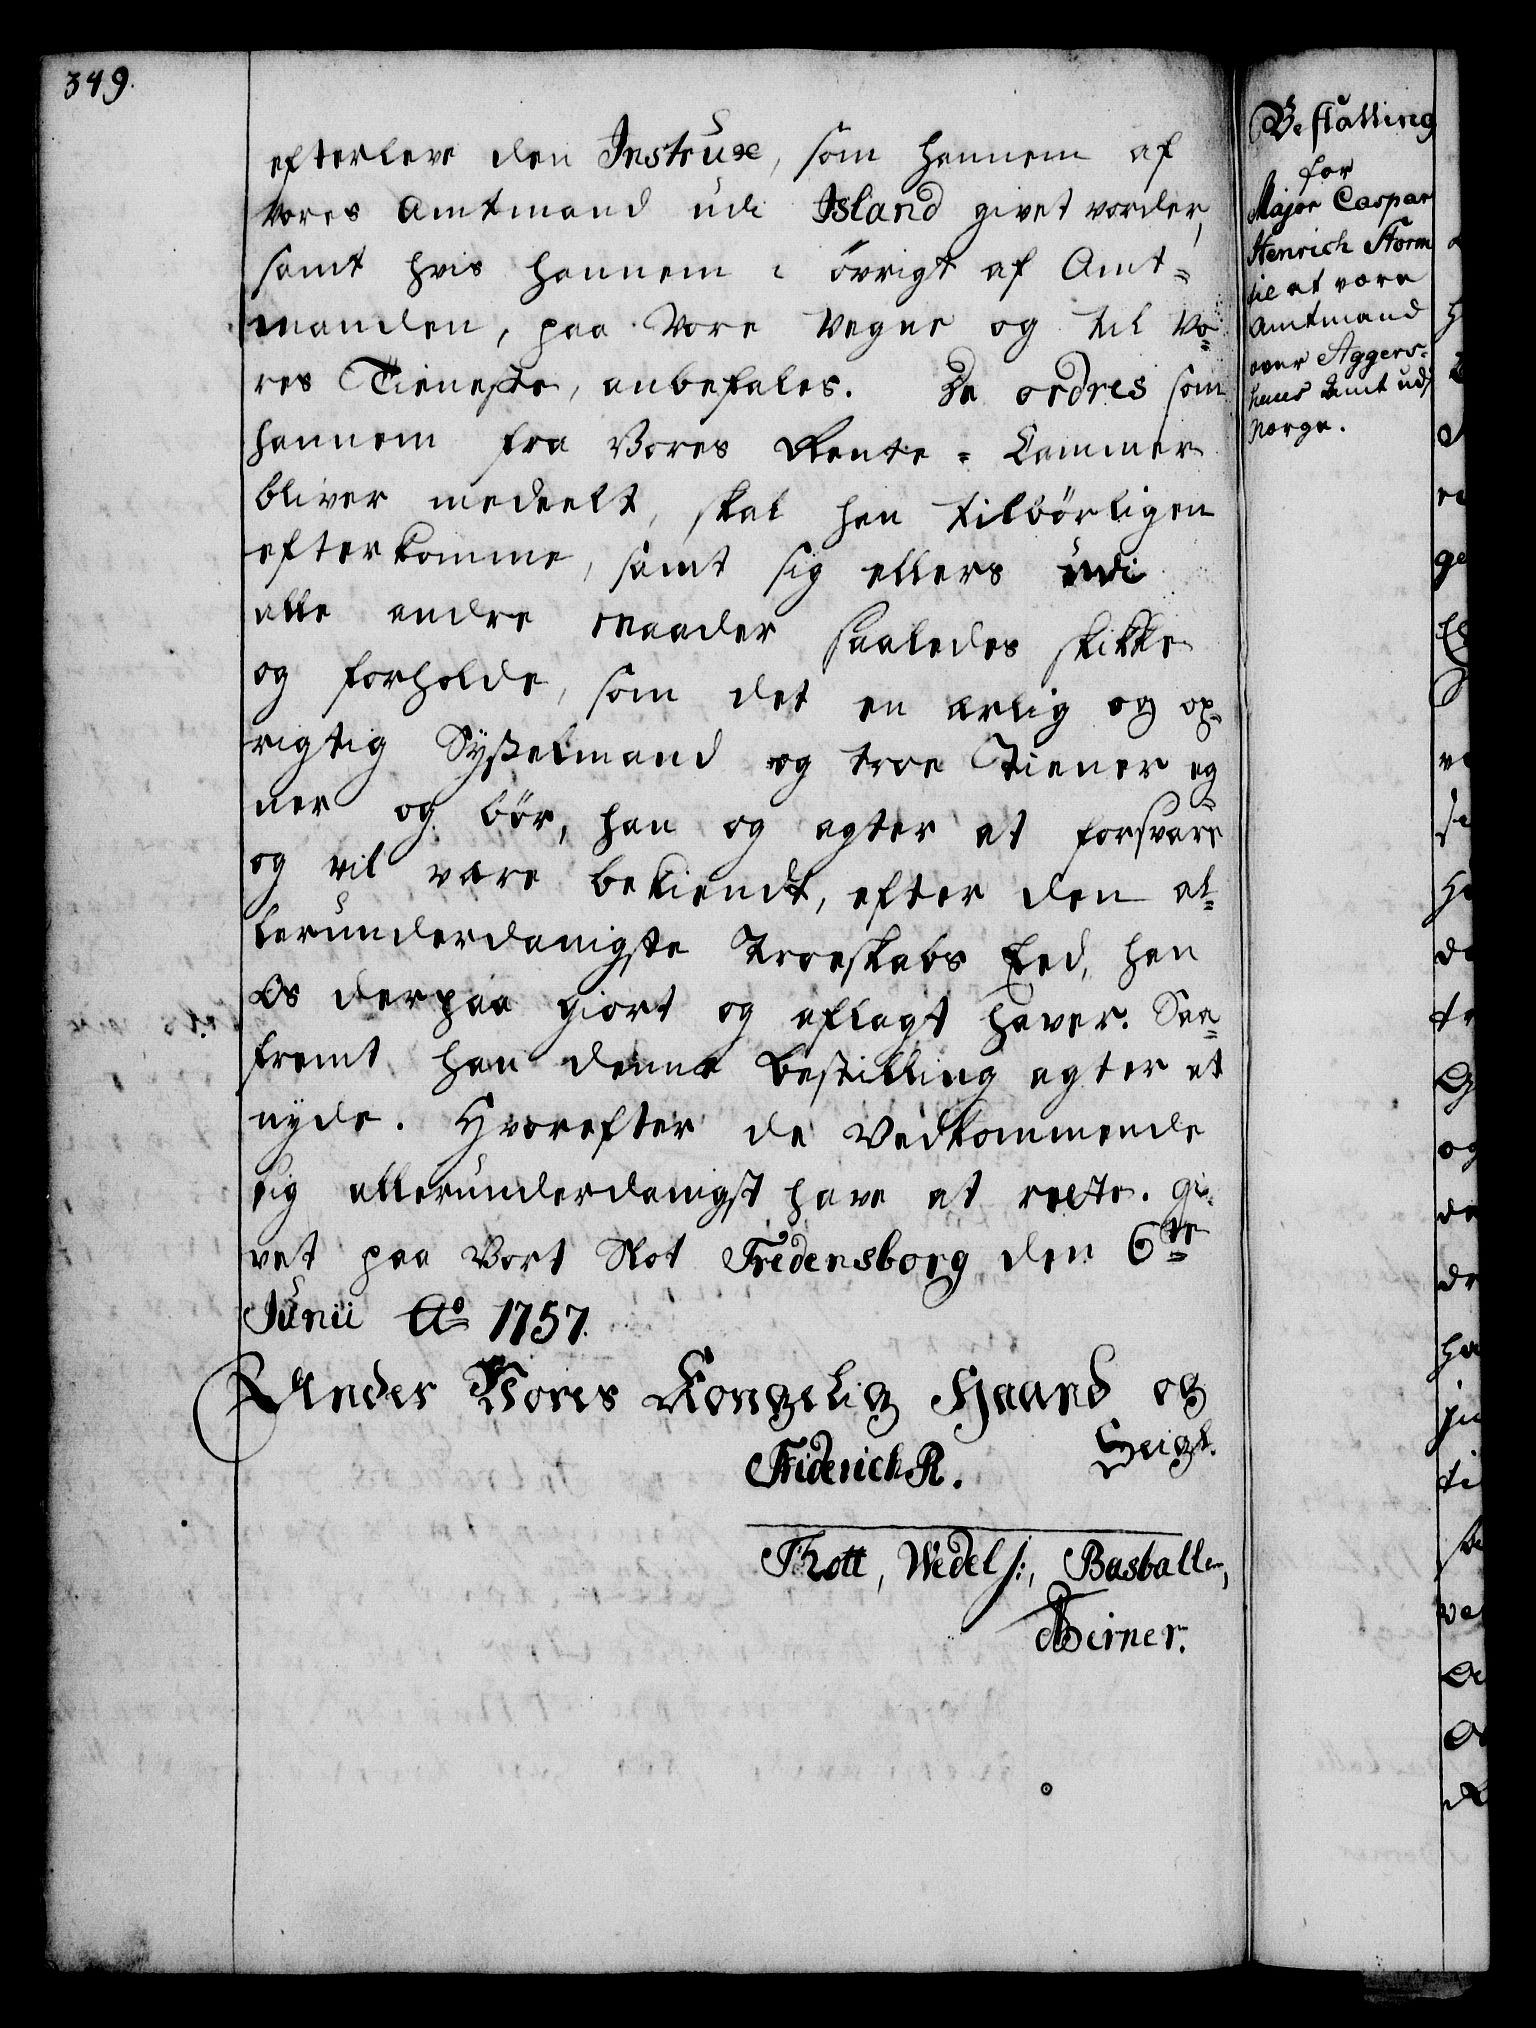 349.
efterleve den Instrux, som hannem af
Vores Amtmand udi Island givet vorder,
samt hvis hannem i övrigt af Amt=
manden, paa Vore Vegne og til Vo=
res Tieneste, anbefales. De ordres som
hannem fra Vores Rente=Cammer
bliver meedeelt, skal han tilbörligen
efterkomme, samt sig ellers udi
alle andre Maader saaledes skikke
og forholde, som det en ærlig og op=
rigtig Sysselmand og troe Tiener eg
ner og bör, han og agter at forsvare
og vil være bekiendt, efter den al=
lerunderdanigste Troeskabs Eed, han
Os derpaa giort og aflagt haver. Saa=
fremt han denne Bestilling agter at
nyde. Hvorefter de Vedkommende
sig allerunderdanigst have at rette. Gi=
vet paa Vort Slot Fredensborg den 6te
Junii Ao 1757.
Under Vores Kongelig Haand og
Seigl.
Friderich R.
Thott, Wedel f:, Basballe,
Berner.
Bestalling
for
Major Caspar
Henrich Storm
til at være
Amtmand
over Aggers=
huus Amt udi
Norge.